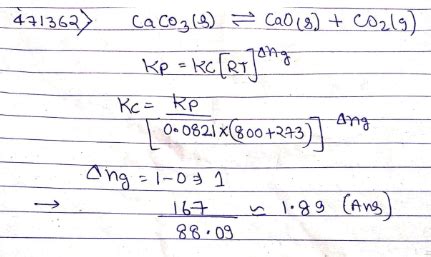 471362> CaCO3(s) ⇌ CaO(s) + CO2(g)
Kp = Kc[RT]^Δng
Kc = Kp / [0.0821×(800+273)]^Δng
Δng = 1-0 ⇒ 1
→ 167 / 88.09 ≃ 1.89 (Ans)